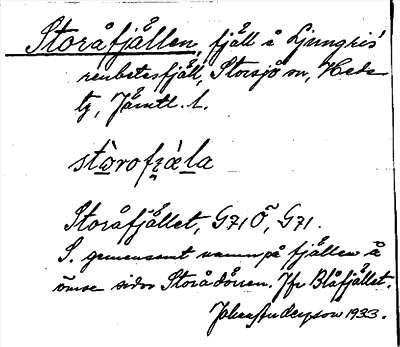 Storåfjällen, fjäll å Ljungris'
renbetesfjäll, Storsjö sn, Hede
tg, Jämtl. l.
Storåfjället, G71 Ö, G71.
S. gemensamt namn på fjällen å
ömse sidor Storådörren. Jfr Blåfjället.
Johan Anderson 1933.